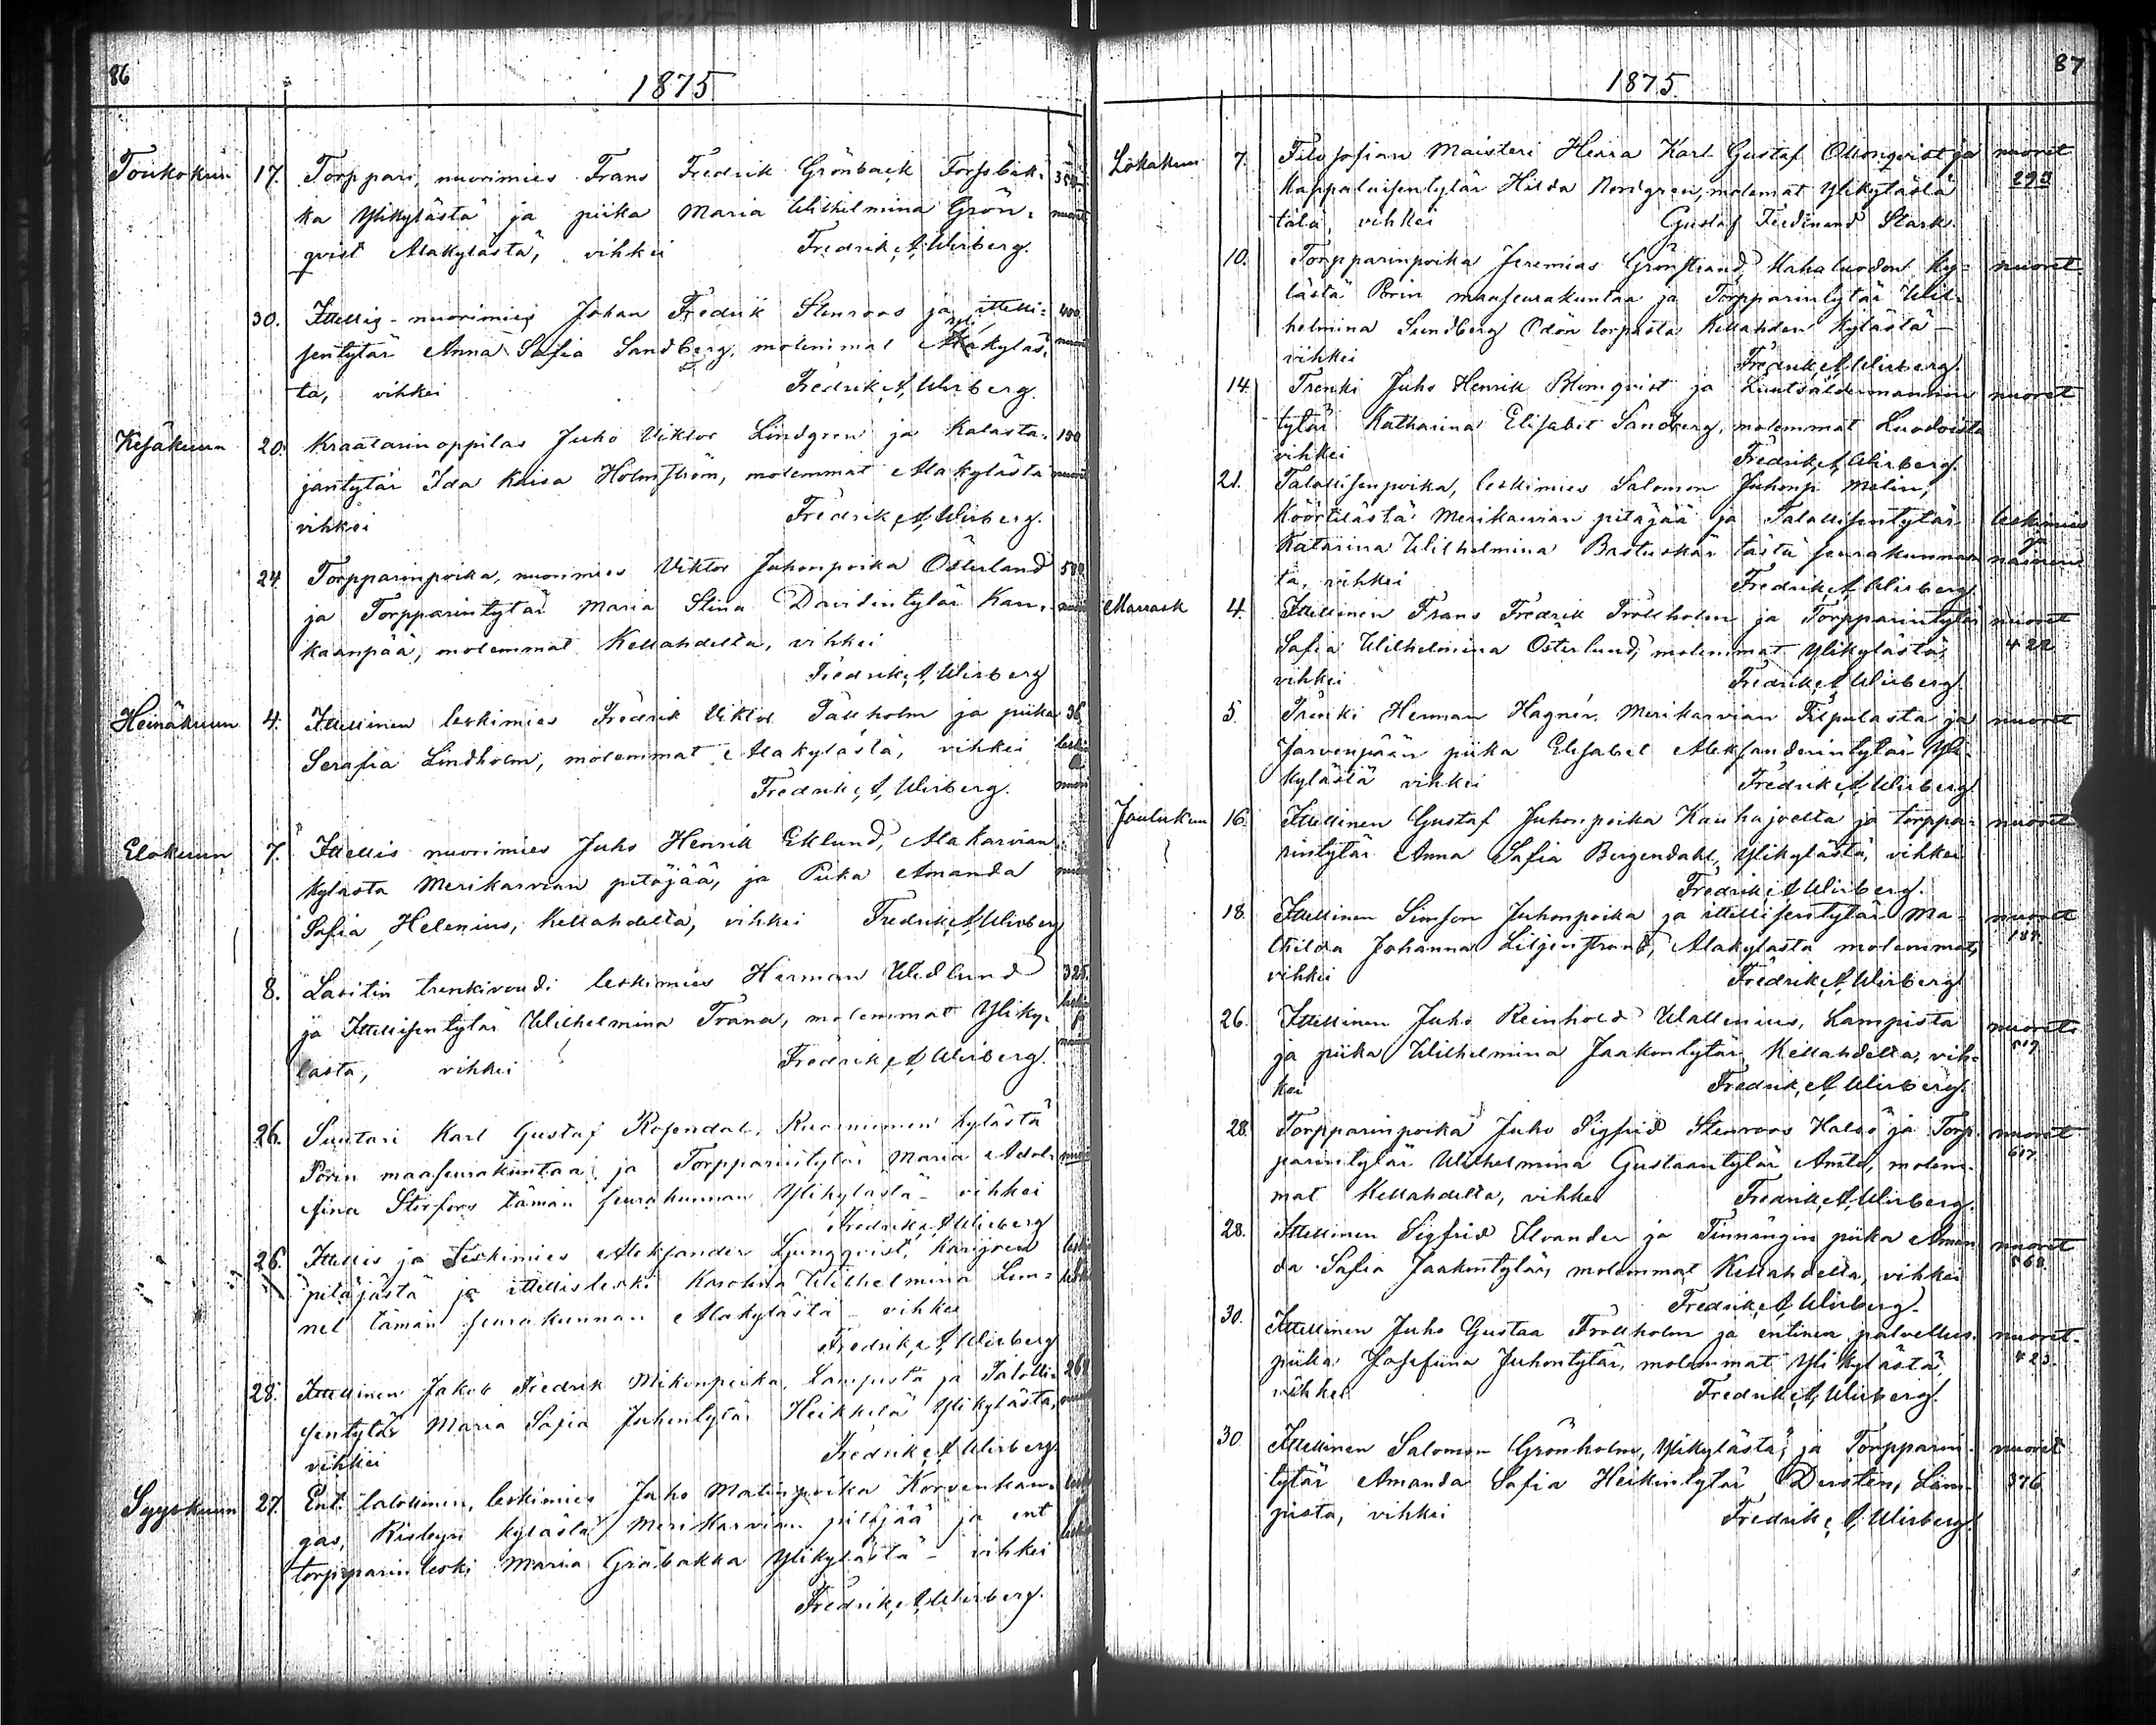 86
1875
Toukokuu 17. Torppari, nuorimies Frans Fredrik Grönback Forssbak-
ka Ylikylästä ja piika Maria Wilhelmina Grön-
qvist Alakylästä, vihkei Fredrik A Wirberg.
30. Ittellis-nuorimies Johan Fredrik Stenroos ja ittelli- 400
sentytär Anna Safia Sandberg, molemmat Alakyläs-
ta, vihkei Fredrik A Wirberg.
Kesäkuun 20. Kraatarinoppilas Juho Viktor Lindgren ja Kalasta-
jantytär Ida Kaisa Holmström, molemmat Alakylästä
vihkei Fredrik A Wirberg.
24 Torpparinpoika, nuorimies Viktor Juhonpoika Österlund
ja Torpparintytär Maria Stina Davidintytär Kan-
kaanpää, molemmat Kellahdelta, vihkei
Fredrik A Wirberg
Heinäkuun 4. Ittellinen leskimies Fredrik Viktor Tallholm ja piika 36
Serafia Lindholm, molemmat Alakylästä, vihkei
Fredrik A Wirberg.
Elokuun 7. Ittellis nuorimies Juho Henrik Eklund, Alakarvian
kylasta Merikarvian pitäjää, ja Piika Amanda
Safia Helenius, Kellahdelta, vihkei Fredrik A Wirberg
8. Lasitin trenkivouti leskimies Herman Widlund 325.
ja Ittellisentytär Wilhelmina Trana, molemmat Yliky-
lasta, vihkei Fredrik A Wirberg.
26. Suutari Karl Gustaf Rosendal, Ruosniemen kylästä
Porin maaseurakuntaa ja Torpparintytär Maria Adol-
fina Storfors tämän seurakunnan Ylikylästä - vihkei
Fredrik A Wirberg
26. Ittellis ja Leskimies Aleksander Ljungqvist, Karijoen
pitäjästä ja ittellisleski Karolina Wilhelmina Lin-
nel tämän seurakunnan Alakylästä - vihkei
Fredrik A Wirberg
28. Ittellinen Jakob Fredrik Mikonpoika, Lampista ja Talolli-
sentytär Maria Safia Juhontytär Heikkilä Ylikylästä,
vihkei Fredrik A Wirberg
Syyskuun 27. Ent. talollinen, leskimies Juho Matinpoika Korvenkan-
gas, kylästä Merikarvian pitäjää ja ent
torpparin leski Maria Gräbakka Ylikylästä - vihkei
Fredrik A Wirberg.
87
1875.
Lokakuun 7. Filosofian Maisteri Herra Karl Gustaf Ollonqvist ja nuoret
Kappalaisentytär Hilda Nordgren, molemat Ylikylästä 293
tälä, vihkei Gustaf Ferdinand Stark.
10. Torpparinpoika Jeremias Grönstrand, Kahaluodon ky- nuoret
lästä Porin maaseurakuntaa ja Torpparintytär Wil-
helmina Sundberg Ödön torpasta Kellahden kylästä -
vihkei Fredrik A Wirberg.
14. Trenki Juho Henrik Blomqvist ja nuoret
tytär Katharina Elisabet Sandberg, molemmat Luodoista
vihkei Fredrik A Wirberg
21. Talallisenpoika, leskimies Salomon Juhonp. Melin,
Köörtilästä Merikarvian pitäjää ja Talallisentytär leskimies
Katarina Wilhelmina Bastuskär tästä seurakunnas- ja
ta, vihkei Fredrik A Wirberg
Marrask 4. Ittellinen Frans Fredrik Trollholm ja Torpparintytär nuoret
Safia Wilhelmina Österlund, molemmat Ylikylästä, 422
vihkei Fredrik A Wirberg.
5. Trenki Herman Hagnér, Merikarvian Filpulasta ja nuoret
Jarvenpään piika Elisabet Aleksanderintytär Yli-
kylästä vihkei Fredrik A Wirberg
Joulukuun 16. Ittellinen Gustaf Juhonpoika Kauhajoelta ja torppa- nuoret
rintytär Anna Safia Bergendahl, Ylikylästä, vihkei
Fredrik A Wirberg.
18. Ittellinen Simson Juhonpoika ja ittellisentytär Ma- nuoret
thilda Johanna Liljenstrand, Alakylasta molemmat, 189.
vihkei Fredrik A Wirberg
26. Ittellinen Juho Reinhold Wallenius, Lampista nuoret
ja piika Wilhelmina Jaakontytär Kellahdelta, vih-
kei Fredrik A Wirberg.
28. Torpparinpoika Juho Sigfrid Stenroos Halsö ja Torp- nuoret
parintytär Wilhelmina Gustaantytär Amté, molem- 617.
mat Kellahdelta, vihkei Fredrik A Wirberg.
28. Ittellinen Sigfrid Elvander ja Finnängin piika Aman- nuoret
da Safia Jaakontytär, molemmat Kellahdelta, vihkei 568.
Fredrik A Wirberg.
30. Ittellinen Juho Gustaa Trollholm ja entinen palvellus- nuoret.
piika Josefiina Juhontytär, molemmat Ylikylästä, 423.
vihkei Fredrik A Wirberg.
30 Ittellinen Salomon Grönholm, Ylikylästä, ja Torpparin- nuoret
tytär Amanda Safia Heikintytär Dersten, Lam- 376
pista, vihkei Fredrik A Wirberg.